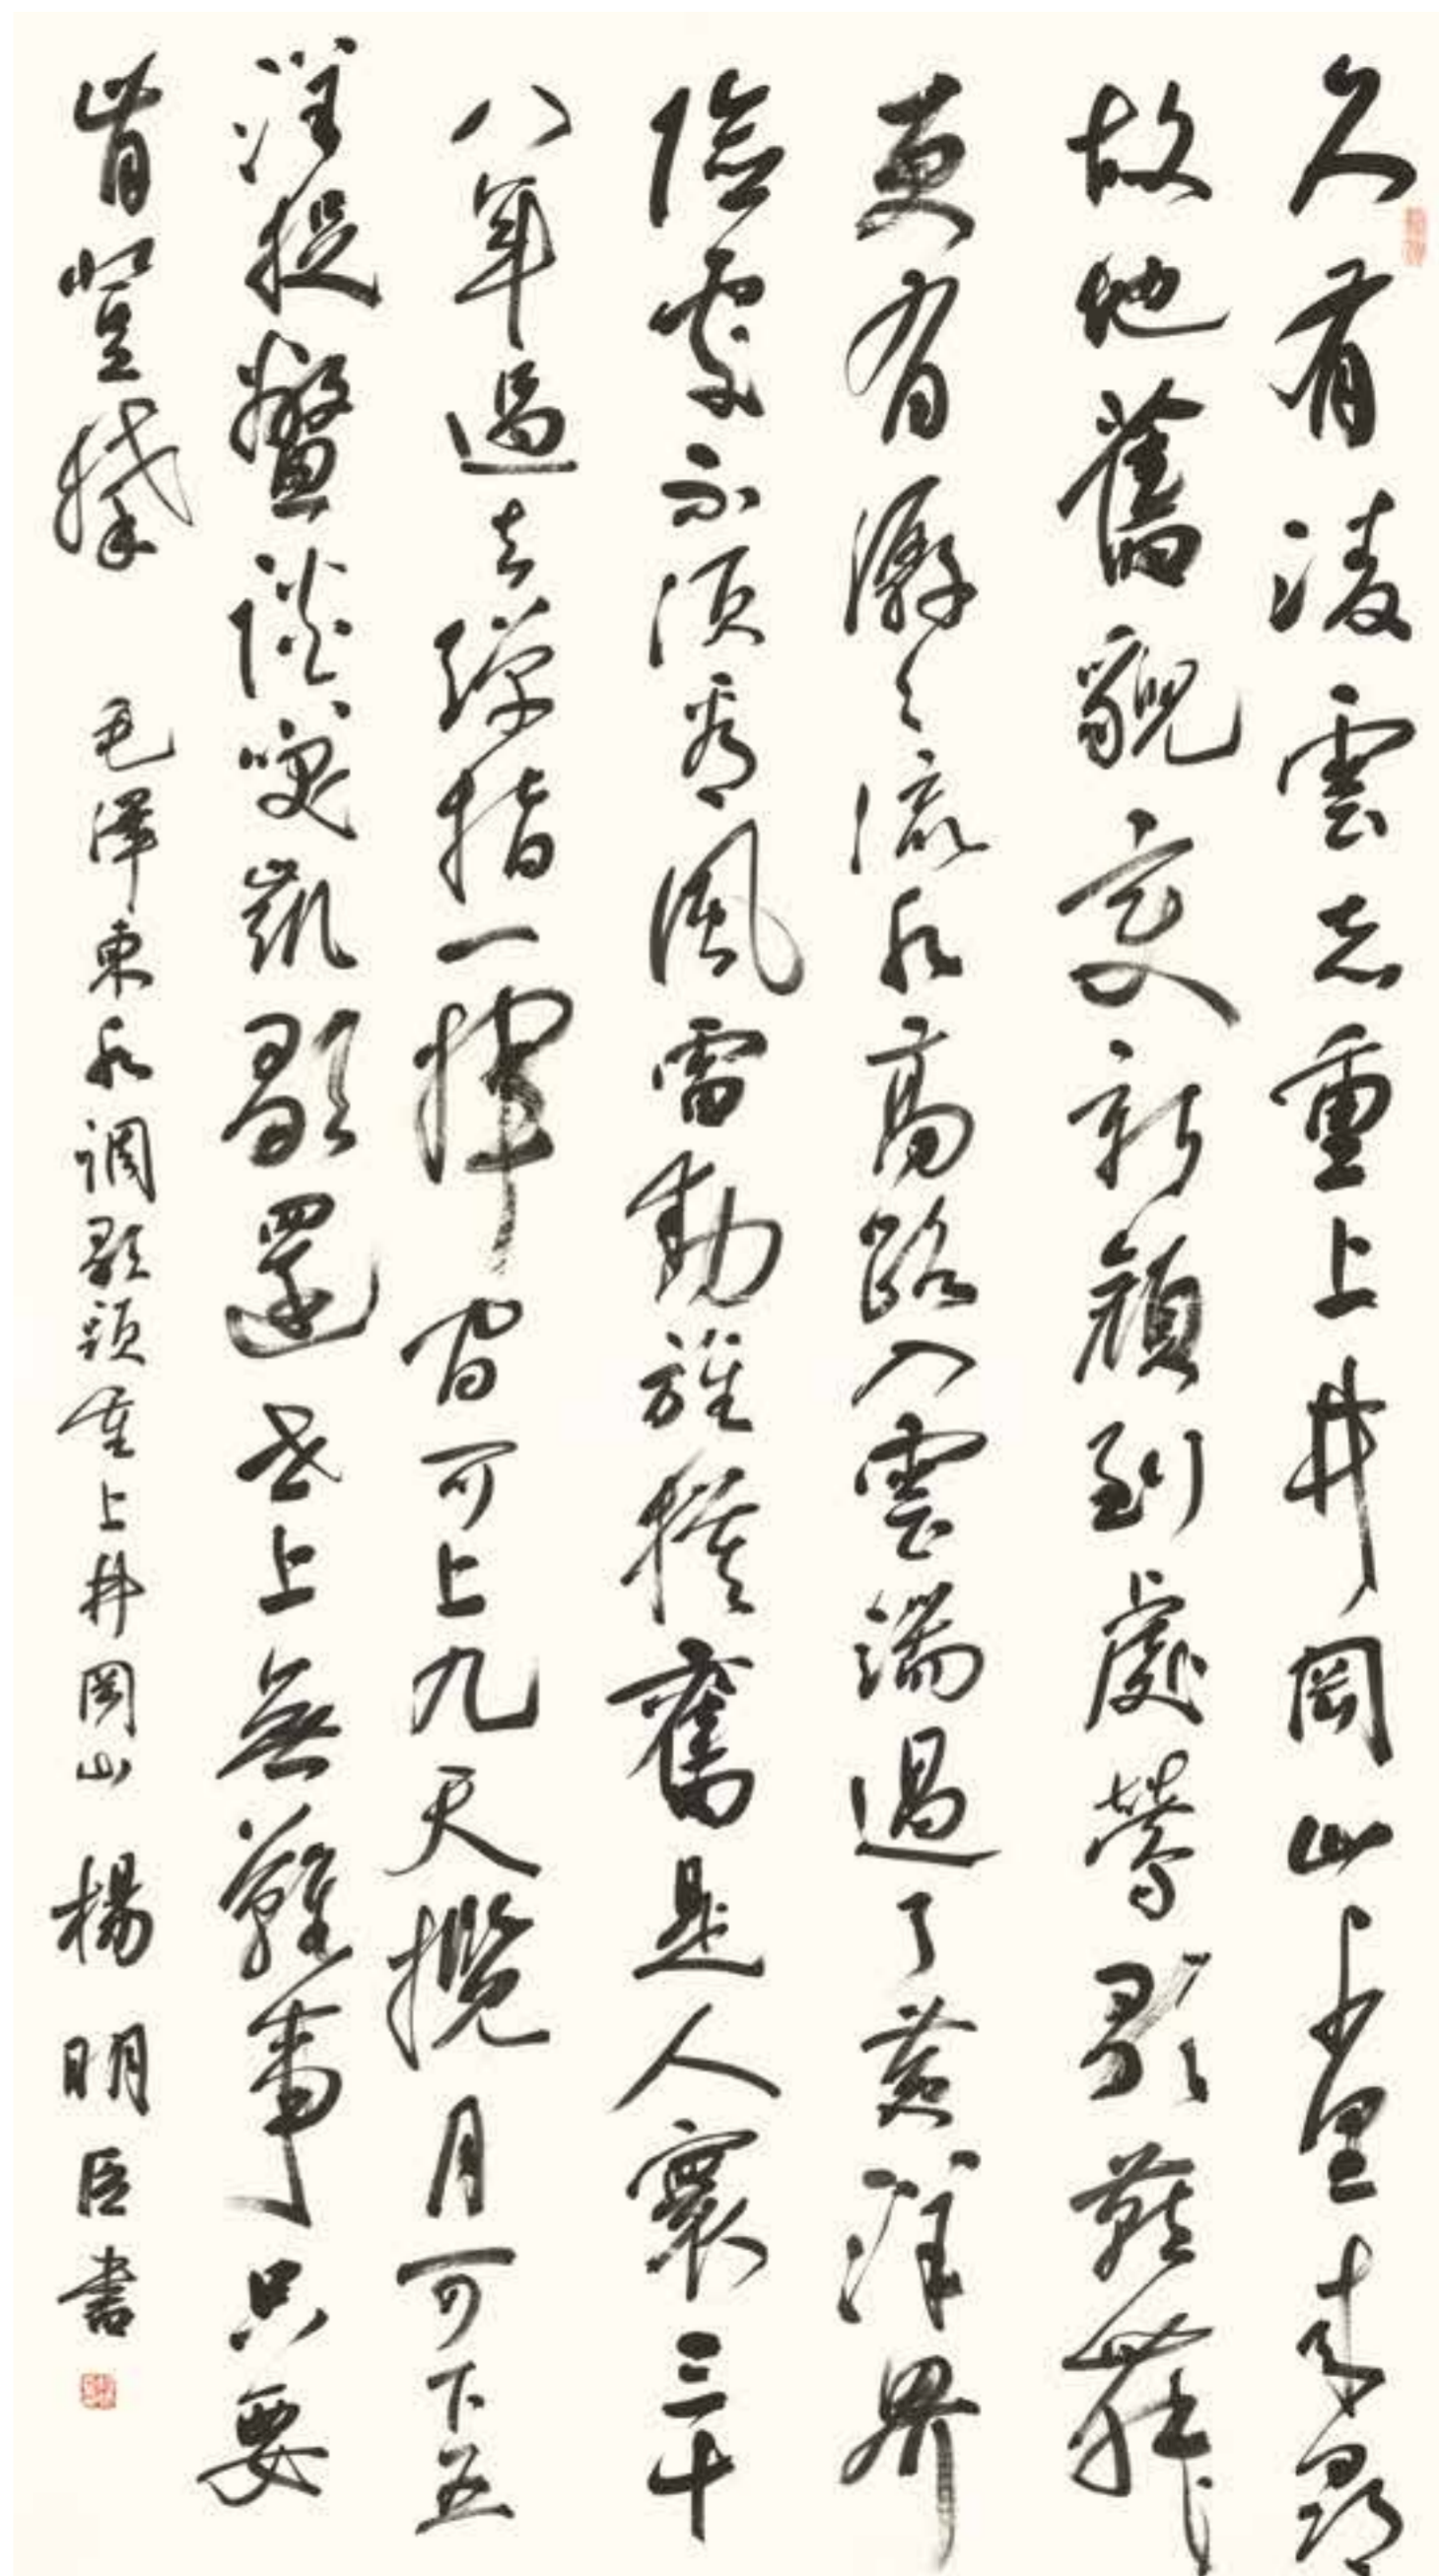 久有凌雲志重上井岡山千里来尋
故地舊貌变新顔到處鶯歌燕舞
更有潺〻流水高路入雲端過了黄洋界
險處不須看風雷動旌旗奮是人寰三十
八年過去彈指一揮间可上九天攬月可下五
洋捉鱉談笑凱歌還世上無難事只要
肯登攀 毛澤東水调歌頭重上井岡山 楊明臣書